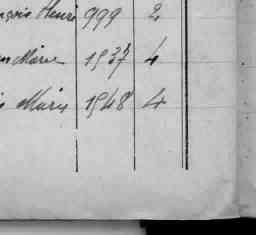 nçois Henri 999 2
Marie 1937 4
s Marie 1948 4